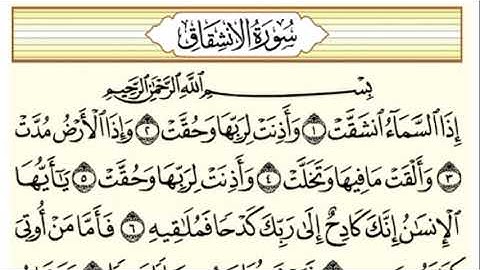 سُورَةُ الانشِقَاقِ
بِسْمِ اللَّهِ الرَّحْمَٰنِ الرَّحِيمِ
إِذَا السَّمَاءُ انشَقَّتْ ١ وَأَذِنَتْ لِرَبِّهَا وَحُقَّتْ ٢ وَإِذَا الْأَرْضُ مُدَّتْ
٣ وَأَلْقَتْ مَا فِيهَا وَتَخَلَّتْ ٤ وَأَذِنَتْ لِرَبِّهَا وَحُقَّتْ ٥ يَا أَيُّهَا
الْإِنسَانُ إِنَّكَ كَادِحٌ إِلَىٰ رَبِّكَ كَدْحًا فَمُلَاقِيهِ ٦ فَأَمَّا مَنْ أُوتِيَ